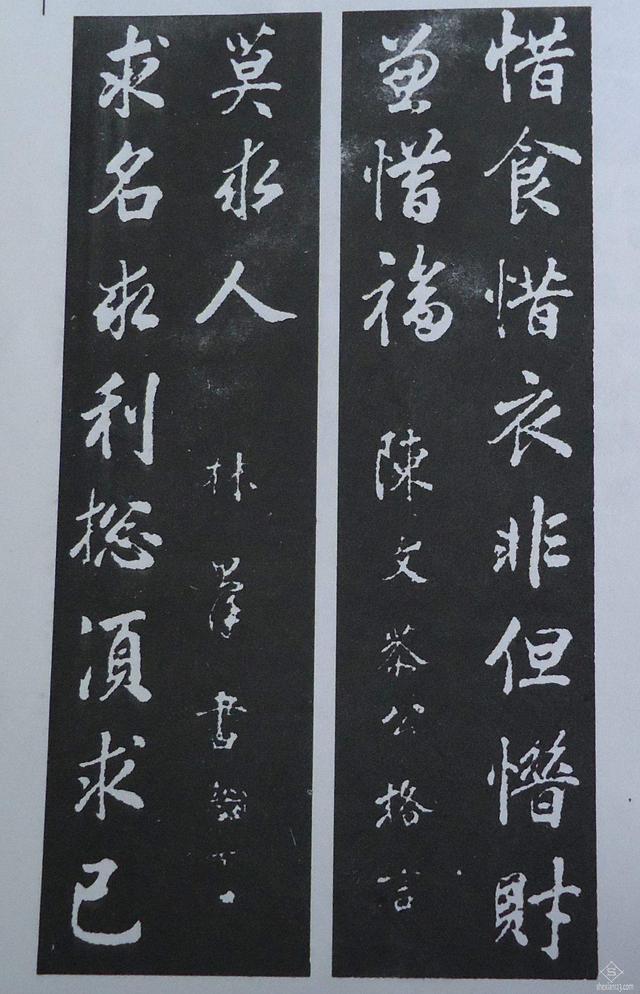 惜食惜衣非但惜財
兼惜福
陳文恭公格言
求名求利總須求己
莫求人
林
書